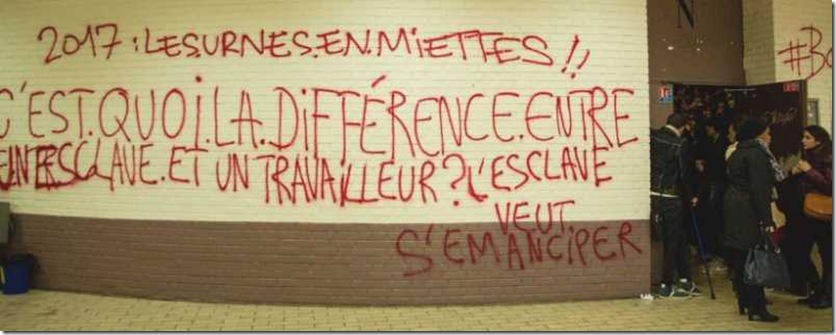 2017 : LES.URNES.EN.MiETTES !!
C'EST.QUOi.LA.DiFFÉRENCE.ENTRE
ESCLAVE.ET UN TRAVAiLLEUR ? L'ESCLAVE
VEUT
S'EMANCIPER
N